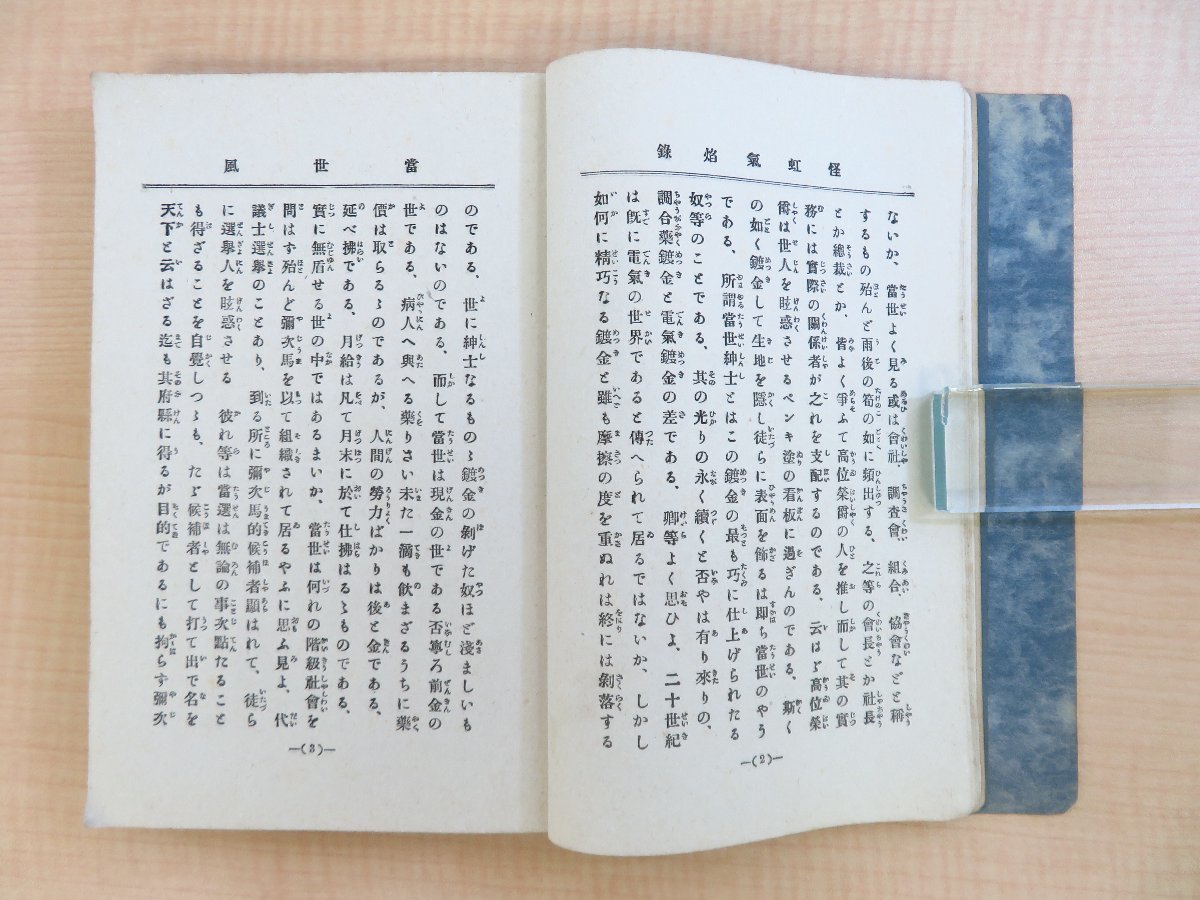 怪虹氣焰錄
ないか、當世よく見る或は會社、調査會、組合、協會などと稱
するもの殆んど雨後の筍の如に頻出する、之等の會長とか社長
とか總裁とか、皆よく爭ふて高位榮爵の人を推し而して其の實
務には實際の關係者が之れを支配するのである、云はゞ高位榮
爵は世人を眩惑させるペンキ塗の看板に過ぎんのである、斯く
の如く鍍金して生地を隱し徒らに表面を飾るは即ち當世のやう
である、所謂當世紳士とはこの鍍金の最も巧に仕上げられたる
奴等のことである、其の光りの永く續くと否やは有り來りの、
調合藥鍍金と電氣鍍金の差である、卿等よく思ひよ、二十世紀
は既に電氣の世界であると傳へられて居るではないか、しかし
如何に精巧なる鍍金と雖も摩擦の度を重ぬれは終には剝落する
—(2)—
當世風
のである、世に紳士なるものゝ鍍金の剝げた奴ほど淺ましいも
のはないのである、而して當世は現金の世である否寧ろ前金の
世である、病人へ與へる藥りさい未た一滴も飮まざるうちに藥
價は取らるゝのであるが、人間の勞力ばかりは後と金である、
延べ拂である、月給は凡て月末に於て仕拂はるゝものである、
實に無盾せる世の中ではあるまいか、當世は何れの階級社會を
問はす殆んど彌次馬を以て組織されて居るやふに思ふ見よ、代
議士選擧のことあり、到る所に彌次馬的候補者顯はれて、徒ら
に選擧人を眩惑させる、彼れ等は當選は無論の事次點たること
も得ざることを自覺しつゝも、たゞ候補者として打て出で名を
天下と云はざる迄も其府縣に得るが目的であるにも拘らす彌次
—(3)—